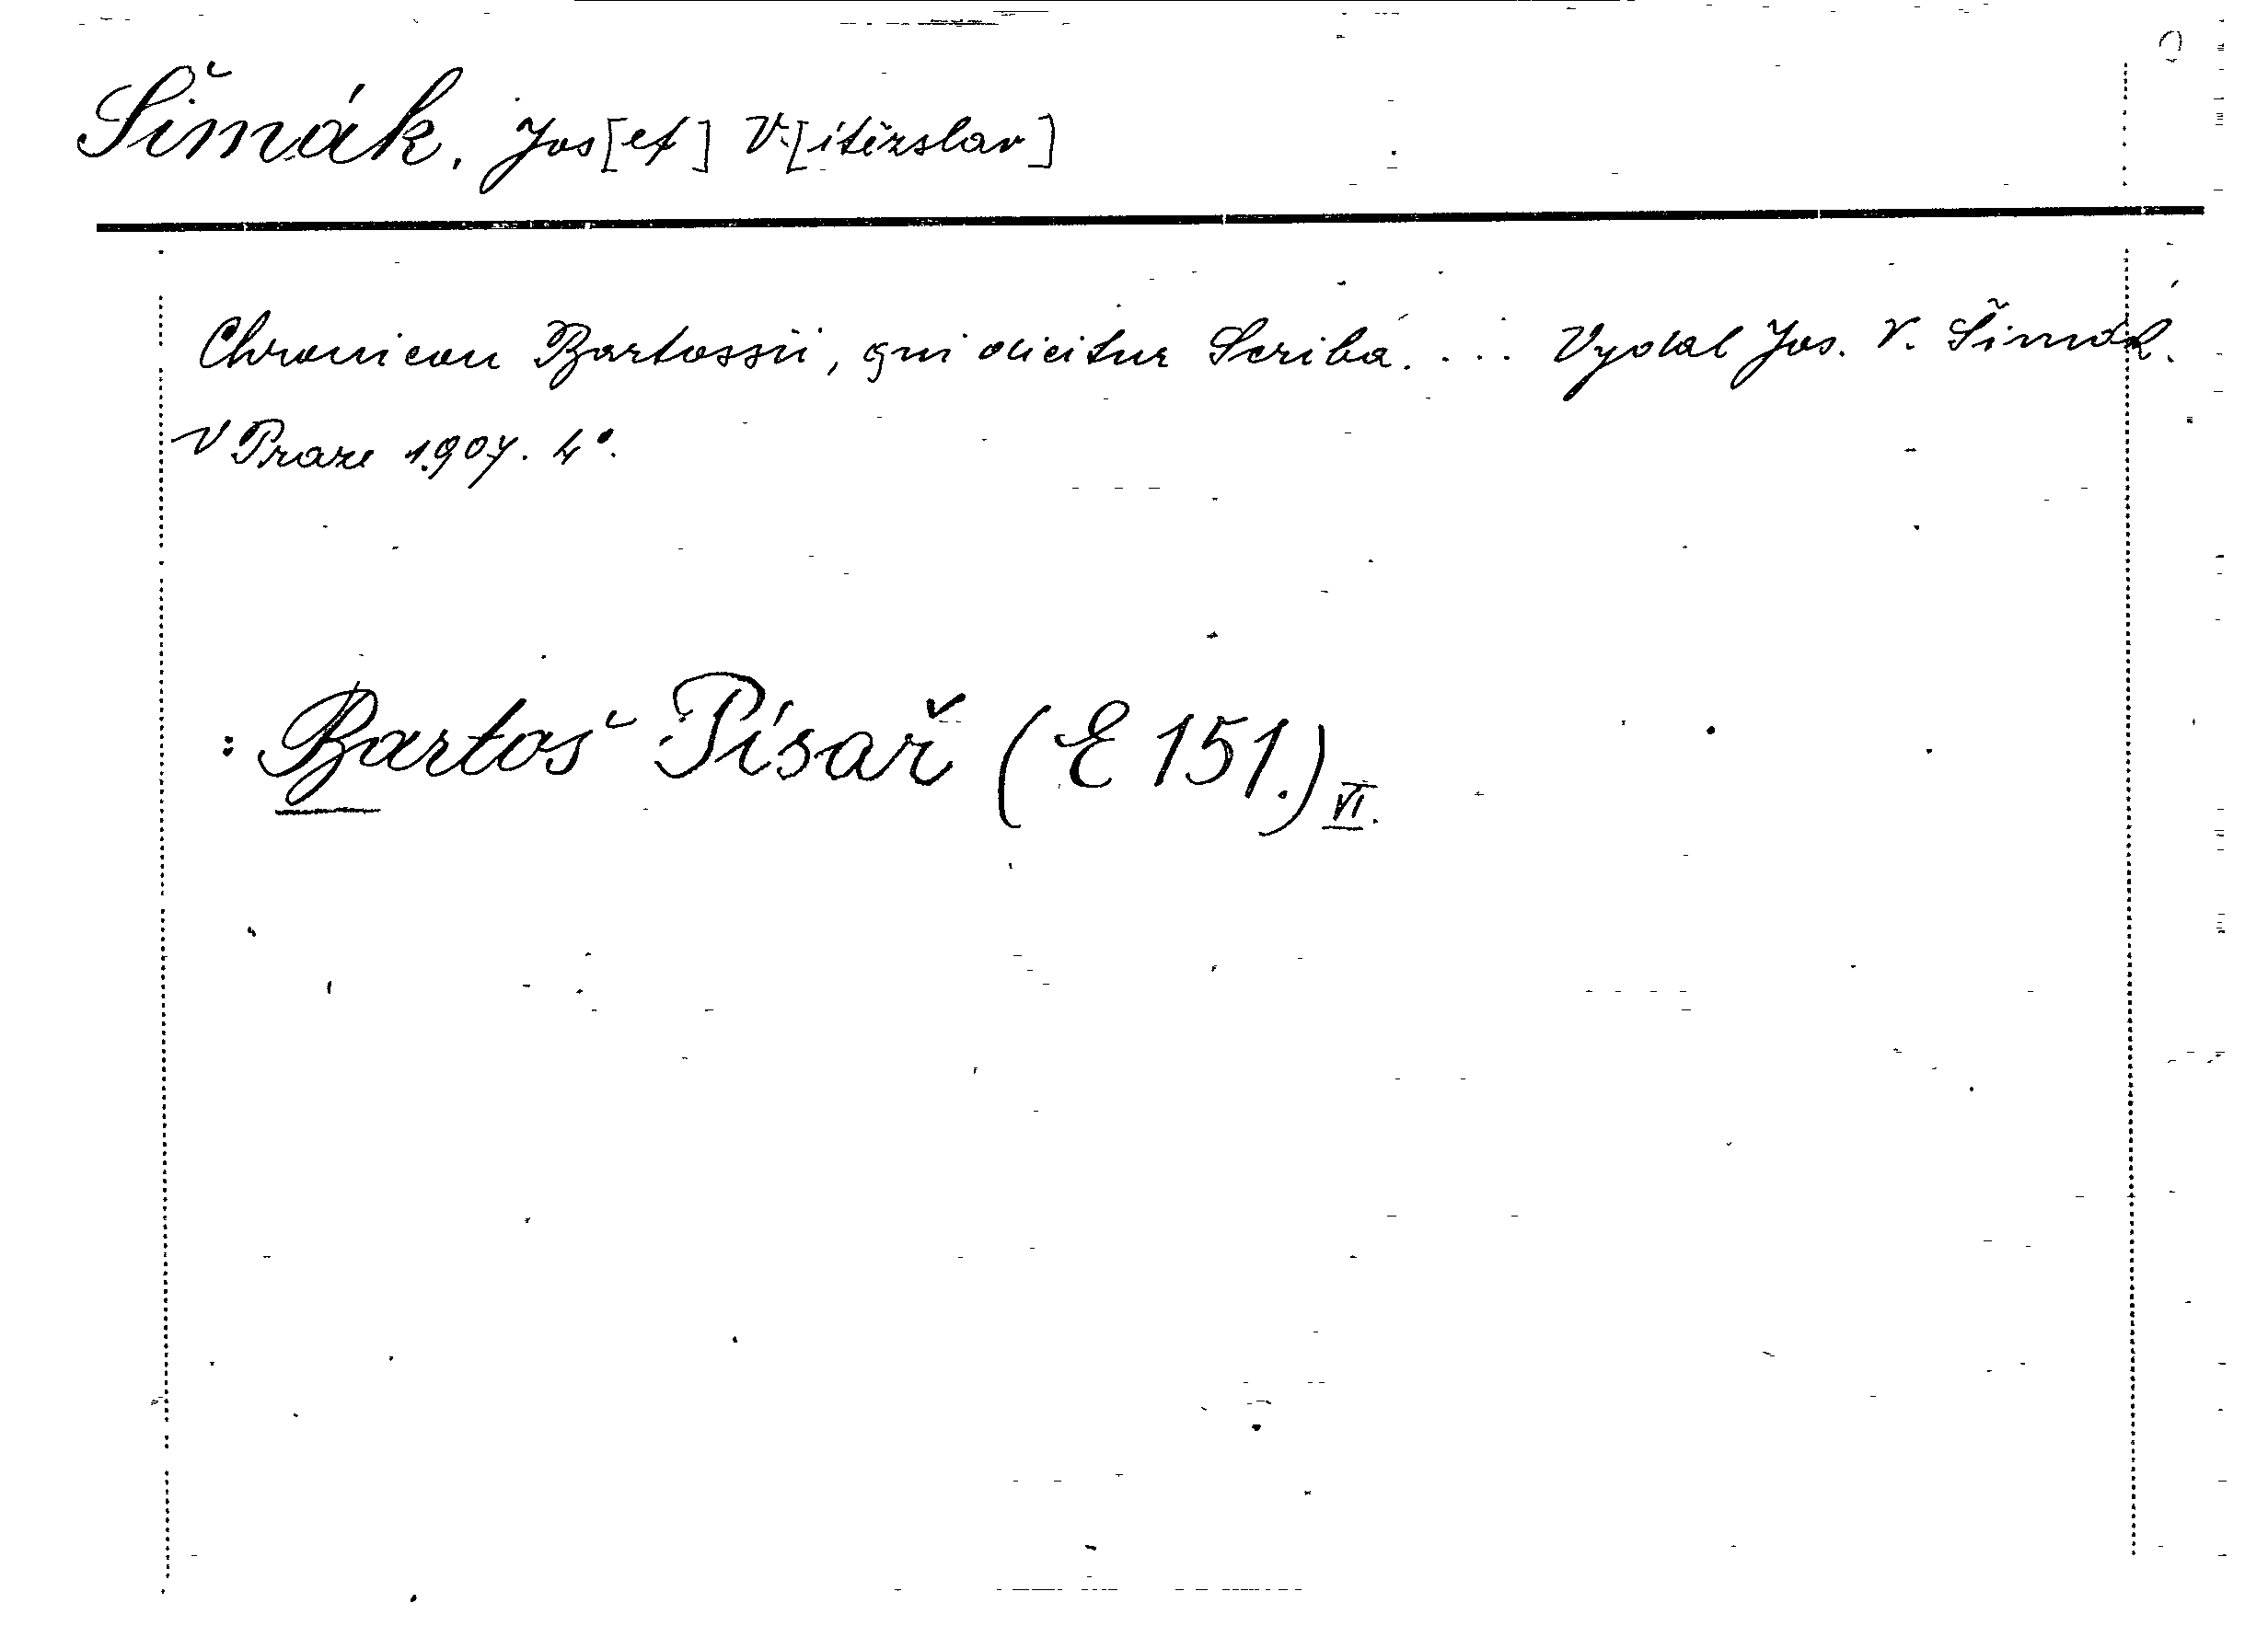 Šimák, Jos[ef] V.[ítězslav]
Chronicon Bartossii, qui dicitur Scriba. ... Vydal Jos. V. Šimák.
V Praze 1907. 4°.
: Bartoš Písař (E 151.) VI.